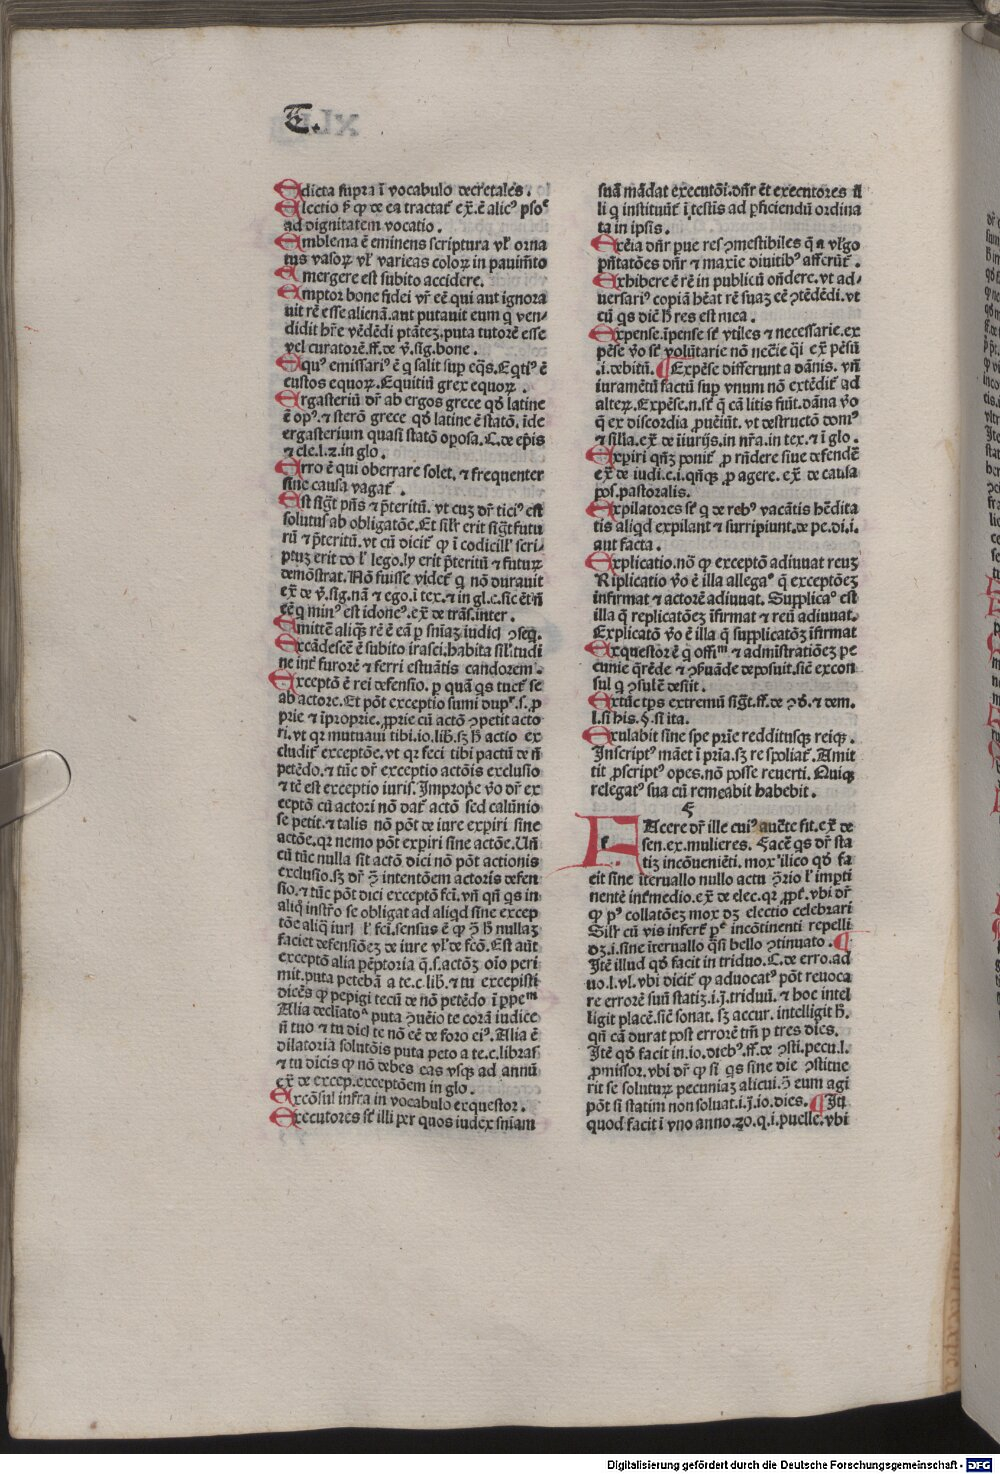 E.
Edicta supra ī vocabulo decretales.
Electio ē ꝙ de ea tractat᷑ ex̄. ē alic⁹ ꝑsoᵉ
ad dignitatem vocatio.
Emblema ē eminens scriptura vl᷑ orna
tus vasoꝝ vl᷑ varietas coloꝝ in pauimēto
Emergere est subito accidere.
Emptor bone fidei vr̄ eē qui aut ignora
uit rē esse alienā. aut putauit eum q̄ ven⸗
didit hr̄e vēdēdi ptātez. puta tutorē esse
vel curatorē. ff. de v̄. sig. bone.
Equ⁹ emissari⁹ ē q̄ salit suꝑ eq̄s. Eqti⁹ ē
custos equoꝝ. Equitiū grex equoꝝ.
Ergasteriū dr̄ ab ergos grece qd̓ latine
ē op⁹. ⁊ sterō grece qd̓ latine ē statō. īde
ergasterium quasi statō oꝑosa. C. de ep̄is
⁊ cle. l. 2. in glo.
Erro ē qui oberrare solet. ⁊ frequenter
sine causa vagat᷑.
Est sigt᷑ pn̄s ⁊ p̄teritū. vt cuz dr̄ tici⁹ est
solutus ab obligatōe. Et silr̄ erit sigt᷑ futu
rū ⁊ p̄teritū. vt cū dicit᷑ ꝙ ī codicill᷑ scri⸗
ptuz erit do l᷑ lego. ly erit p̄teritū ⁊ futuꝝ
demōstrat. Nō fuisse videt᷑ q̄ nō durauit
ex̄ de v̄. sig. nā ⁊ ego. ī tex. ⁊ in gl. c. sic ēt n̄
eē q̄ min⁹ est idone⁹. ex̄ de trās. inter.
Emittē aliq̄s rē ē eā ꝑ sn̄iaz iudicꝭ ꝯseq̄.
Excādescē ē subito irasci. habita sil᷑itudi
ne int᷑ furorē ⁊ ferri estuātis candorem.
Exceptō ē rei defensio. ꝑ quā q̄s tuet᷑ se
ab actore. Et pōt exceptio sumi dup⸗. s. ꝓ
prie ⁊ īproprie. ꝓprie cū actō ꝯpetit acto
ri. vt qꝛ mutuaui tibi. io. lib. sꝫ h̄ actio ex
cludit᷑ exceptōe. vt qꝛ feci tibi pactū de nō
petēdo. ⁊ tūc dr̄ exceptio actōis exclusio
⁊ tē est exceptio iuris. Improꝑe v̄o dr̄ ex
ceptō cū actori nō dat᷑ actō sed calūnio
se petit. ⁊ talis nō pōt de iure exꝑiri sine
actōe. qꝛ nemo pōt exꝑiri sine actōe. Un̄
cū tūc nulla sit actō dici nō pōt actionis
exclusio. sꝫ dr̄ ꝯ̄ intentōem actoris defen
sio. ⁊ tūc pōt dici exceptō fcī. vn̄ qn̄ q̄s in
aliq̄ instr̄o se obligat ad aliqd̓ sine excep
tōe aliq̄ iurꝭ l᷑ fcī. sensus ē ꝙ ꝯ̄ h̄ nullaꝫ
faciet defensiōeꝫ de iure vl᷑ de fcō. Est aūt
exceptō alia ꝑēptoria q̄. s. actōꝫ oīo peri
mit. puta petebā a te. c. lib̄. ⁊ tu excepisti
dicēs ꝙ pepigi tecū de nō petēdo ī ꝑpeᵐ
Alia declīatoᵃ puta ꝯuēio te corā iudice
n̄ tuo ⁊ tu dicꝭ te nō eē de foro ei⁹. Alia ē
dilatoria solutōis puta peto a te. c. libras
⁊ tu dicis ꝙ nō debes eas vsqꝫ ad annū
ex̄ de excep. exceptōem in glo.
Excōsul infra in vocabulo exquestor.
Executores sē illi per quos iudex sniam
suā mādat executōi. dn̄r ēt executores il
li q̄ instituūt᷑ ī testīs ad ꝑficiendū ordina
ta in ipsis.
Exēia dn̄r ꝓue res ꝯmestibiles q̄ a vl᷑go
pn̄tatōes dn̄r ⁊ maxīe diuitib⁹ afferūt᷑.
Exhibere ē rē in publicū on̄dere. vt ad⸗
uersari⁹ copiā hēat rē suaꝫ eē ꝯtēdēdi. vt
cū q̄s diē h̄ res est mea.
Expense. īpense sē vtiles ⁊ necessarie. ex
pēse v̄o sē volūtarie nō neccīe q̄i ex̄ pēsū
.i. debitū. ¶ Expēse differunt a dānis. vn̄
iuramētū factū suꝑ vnum nō extēdit᷑ ad
alteꝝ. Expēse. n. sē q̄ cā litis fiūt. dāna v̄o
q̄ ex discordia ꝓueiūt. vt destructō dom⁹
⁊ sil̄ia. ex̄ de iiurijs. in nr̄a. in tex. ⁊ ī glo.
Exꝑiri qn̄qꝫ ponit᷑ ꝓ rn̄dere siue defendē
ex̄ de iudi. c. i. qn̄qꝫ ꝓ agere. ex̄ de causa
pos. pastoralis.
Expilatores sē q̄ de reb⁹ vacātis hēdita
tis aliqd̓ expilant ⁊ surripiunt. de pe. di. i.
aut facta.
Explicatio. nō ꝙ exceptō adiuuat reuꝫ
Riplicatio v̄o ē illa allega⁹ q̄ exceptōeꝫ
infirmat ⁊ actorē adiuuat. Supplica⁹ est
illa q̄ replicatōeꝫ īfirmat ⁊ reū adiuuat.
Explicatō v̄o ē illa q̄ supplicatōꝫ īfirmat
Exquestor ē q̄ offiᵐ ⁊ admīstratiōeꝫ pe
cunie q̄rēde ⁊ ꝯẜuāde deposuit. sic̄ excon
sul q̄ ꝯsulē desiit.
Extūc tꝑs extremū sigt᷑. ff. de ꝯd̓. ⁊ dem.
l. si his. §. si ita.
Exulabit sine spe pr̄ie redditusqꝫ reiqꝫ.
Inscript⁹ māet ī pr̄ia. sꝫ re spoliat᷑. Amit
tit ꝓscript⁹ opes. nō posse reuerti. Quiqꝫ
relegat⁹ sua cū remeabit habebit.
F
FAcere dr̄ ille cui⁹ auct̄e fit. ex̄ de
sen. ex. mulieres. Facē q̄s dr̄ sta
tiꝫ incōueniēti. mox ilico qd̓ fa
cit sine īteruallo nullo actu ꝯ̄rio l᷑ imꝑti
nente int᷑medio. ex̄ de elec. qꝛ ꝓpt᷑. vbi dr̄
ꝙ p⁹ collatōeꝫ mox dꝫ electio celebrari
Silr̄ cū vis infert᷑ pᵉ incōtinenti repelli
dꝫ. i. sine īteruallo q̄si bello ꝯtinuato. ¶
Itē illud qd̓ facit in triduo. C. de erro. ad
uo. l. vl. vbi dicit᷑ ꝙ aduocat⁹ pōt reuoca
re errorē suū statiꝫ. i. ī. triduū. ⁊ hoc intel
ligit placē. sic̄ sonat. sꝫ accur. intelligit h̄.
qn̄ cā durat post errorē tm̄ ꝑ tres dies.
Itē qd̓ facit in. io. dieb⁹. ff. de ꝯsti. pecu. l.
ꝓmissor. vbi dr̄ ꝙ si q̄s sine die ꝯstitue
rit se soluturꝝ pecuniaꝫ alicui. ꝯ̄ eum agi
pōt si statim non soluat. i. ī. io. dies. ¶ Itē
quod facit ī vno anno. 20. q. i. puelle. vbi
Digitalisierung gefördert durch die Deutsche Forschungsgemeinschaft - DFG